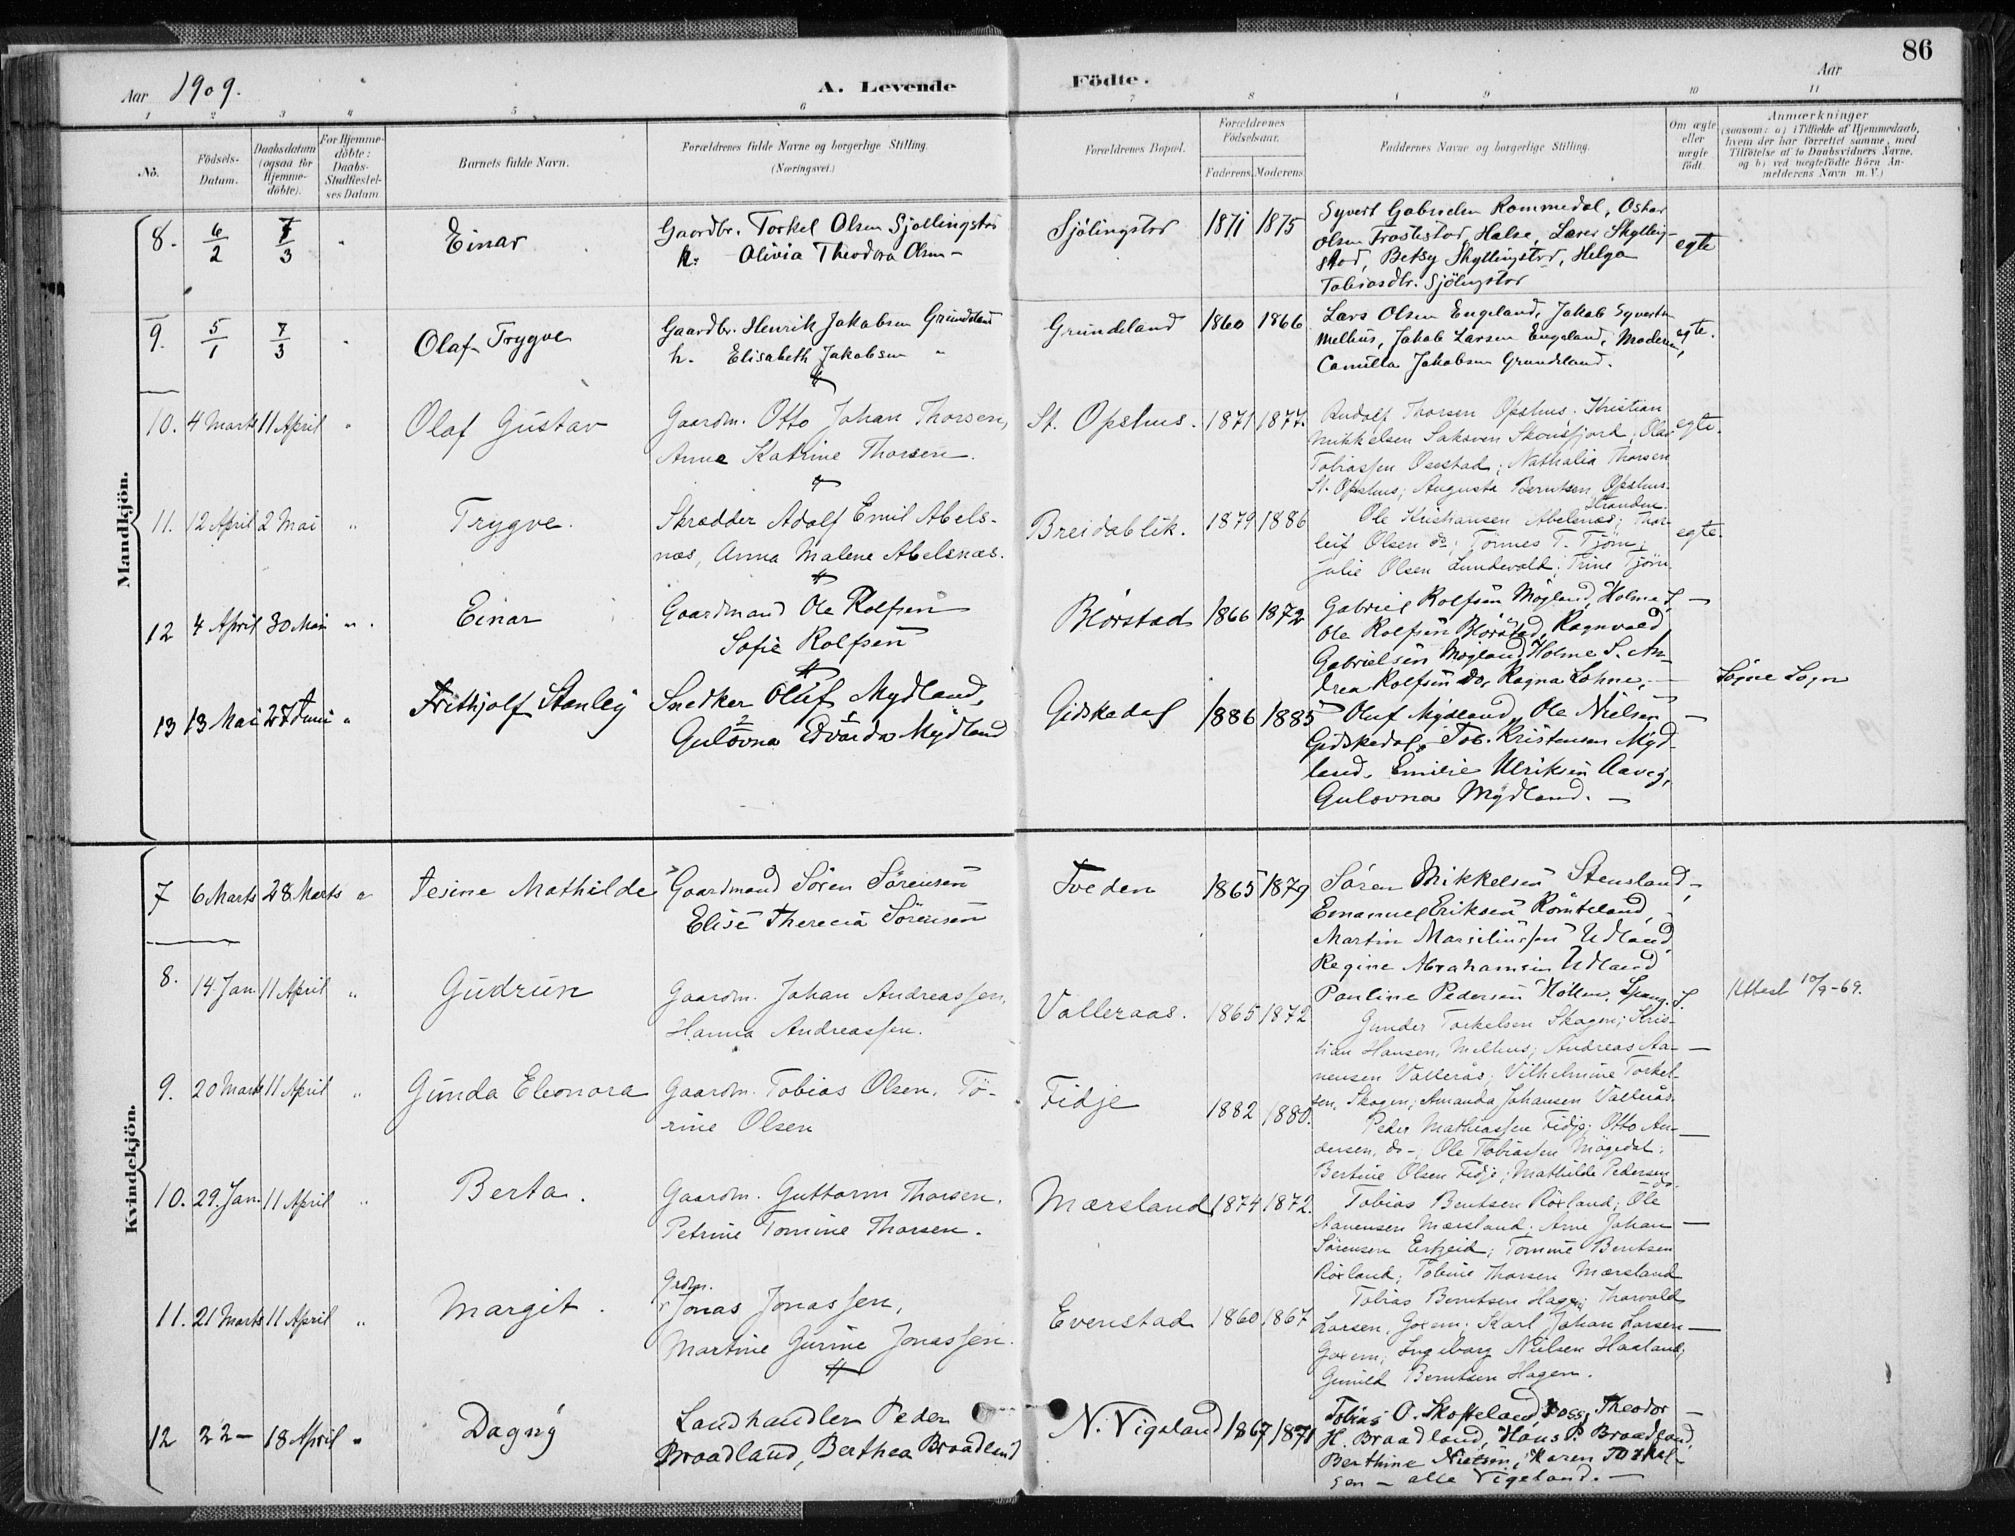 86
Aar 1909.
A. Levende Födte.
Aar
1 2 3 4 5 6 7 8 9 10 11
No.
Födsels-Datum.
Daabsdatum (ogsaa for Hjemme-döbte).
For Hjemme-döbte: Daabs-Stadfæstel-ses Datum
Barnets fulde Navn.
Forældrenes fulde Navne og borgerlige Stilling.
(Næringsvei.)
Forældrenes Bopæl.
Forældrenes Födselsaar.
Faderens. Moderens.
Faddernes Navne og borgerlige Stilling.
Om ægte eller uægte födt.
Anmærkninger
(saasom: a) i Tilfælde af Hjemmedaab, hvem der har forrettet samme, med Tilföielse af to Daabsvidners Navne, og b) ved uægtefödte Börn Anmelderens Navn m. V.)
Mandkjön.
8. 6/2 7/3 " Einar
Gaardbr. Torkel Olsen Sjøllingstad
h. Olivia Theodora Olsen -
Sjölingstad 1871 1875
Syvert Gabrielsen Rommedal, Oskar
Olsen Trostestad, Halse, Lærer Skylling-
stad, Betsy Skyllingstad, Helga
Tobiasdtr. Sjölingstad
egte
9. 5/1 7/3 " Olaf Trygve
Gaardbr. Henrik Jakobsen Grundeland
h. Elisabeth Jakobsen "
Grundeland 1860 1866
Lars Olsen Engeland, Jakob Syvertsen
Melhus, Jakob Larsen Engeland, Moderen,
Camilla Jakobsen Grundeland.
egte.
10. 4 Marts 11 April " Olaf Gustav
Gaardm. Otto Johan Thorsen,
Anne Katrine Thorsen.
St. Opshus. 1871 1877.
Rudolf Thorsen Opshus. Kristian
Mikkelsen Skonsfjord; Olav
Tobiassen Osestad; Nathalia Thorsen
St. Opshus; Augusta Berntsen Opshus.
egte.
11. 12 April 2 Mai " Trygve.
Skrædder Adolf Emil Abels-
næs, Anna Malene Abelsnæs.
Breidablik. 1879 1886
Stranden.
Ole Kristiansen Abelsnæs; Thor-
leif Olsen do; Tønnes T. Tjøm;
Julie Olsen Lundevold; Trine Tjöm
egte.
12 4 April 30 Mai " Einar
Gaardmand Ole Rolfsen
Sofie Rolfsen
Blörstad 1866 1872
Gabriel Rolfsen Mögland, Holme S,
Ole Rolfsen Blörstad, Ragnvald
Gabrielsen Mögland Holme S. An-
drea Rolfsen do, Ragna Lohne, -
Søgne Sogn
13 13 Mai 27 Juni " Frithjolf Stanley
Snedker Oluf Mydland,
Gulovna Edvarda Mydland
Gidskedal 1886 1885
Oluf Mydland, Ole Nielsen -
Gidskedal, Tob. Kristensen Myd-
land, Emilie Ulriksen Aaveg,
Gulovna Mydland. -
Kvindekjön.
7 6 Marts 28 Marts " Jesine Mathilde
Gaardmand Sören Sörensen
Elise Therecia Sörensen
Tveden 1865 1879
Sören Mikkelsen Stensland,
Emanuel Eriksen Römteland,
Martin Marsiliussen Udland,
Regine Abrahamsen Udland
Pauline Pedersen Höllen, Spang. S.
8. 14 Jan. 11 April " Gudrun
Gaardm. Johan Andreassen,
Hanna Andreassen.
Valleraas. 1865 1872
Gunder Torkelsen Skagen; Kris-
tian Hansen, Melhus; Andreas Aa-
nensen Vallerås; Vilhelmine Torkel-
sen, Skagen; Amanda Johansen Vallerås.
Attest 10/9-69.
9. 20 Marts 11 April " Gunda Eleonora
Gaardm. Tobias Olsen, Tö-
rine Olsen
Fidje 1882 1880.
Peder Mathiassen Fidje; Otto An-
dersen, do-; Ole Tobiassen Mögedal;
Bertine Olsen Fidje; Mathilde Pedersen do.
10. 29. Jan. 11 April " Berta.
Gaardm. Guttorm Thorsen,
Petrine Tomine Thorsen.
Mærsland 1874 1872.
Tobias Berntsen Röxland; Ole
Aanensen Mærsland; Arne Johan
Sörensen Erkjeid; Tomine Berntsen
Röxland; Tobine Thorsen Mærsland
11. 21 Marts 11 April " Margit.
Grdm.
Jonas Jonassen,
Martine Gurine Jonassen.
Evenstad 1860 1867
Tobias Berntsen Hagen; Thorvald
Larsen, Goxem; Karl Johan Larsen
Goxem; Ingeborg Nielsen Haaland;
Gunild Berntsen Hagen.
12 22 - 18 April " Dagny
Landhandler Peder
Braadland, Berthea Braadland
N. Vigeland 1867 1871
Tobias O. Skofteland, Theodor
H. Braadland, Hans P. Braadland,
Berthine Nielsen, Karen Torkel-
sen - alle Vigeland. -